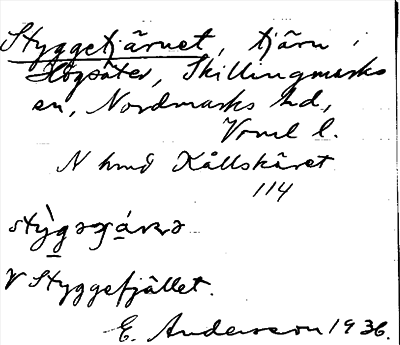 Styggetjärnet, tjärn i
Högsäter, Skillingmarks
sn, Nordmarks hd,
Vrml l.
N hmd Kållskäret
114
V Styggefjället.
E. Andersson 1936.